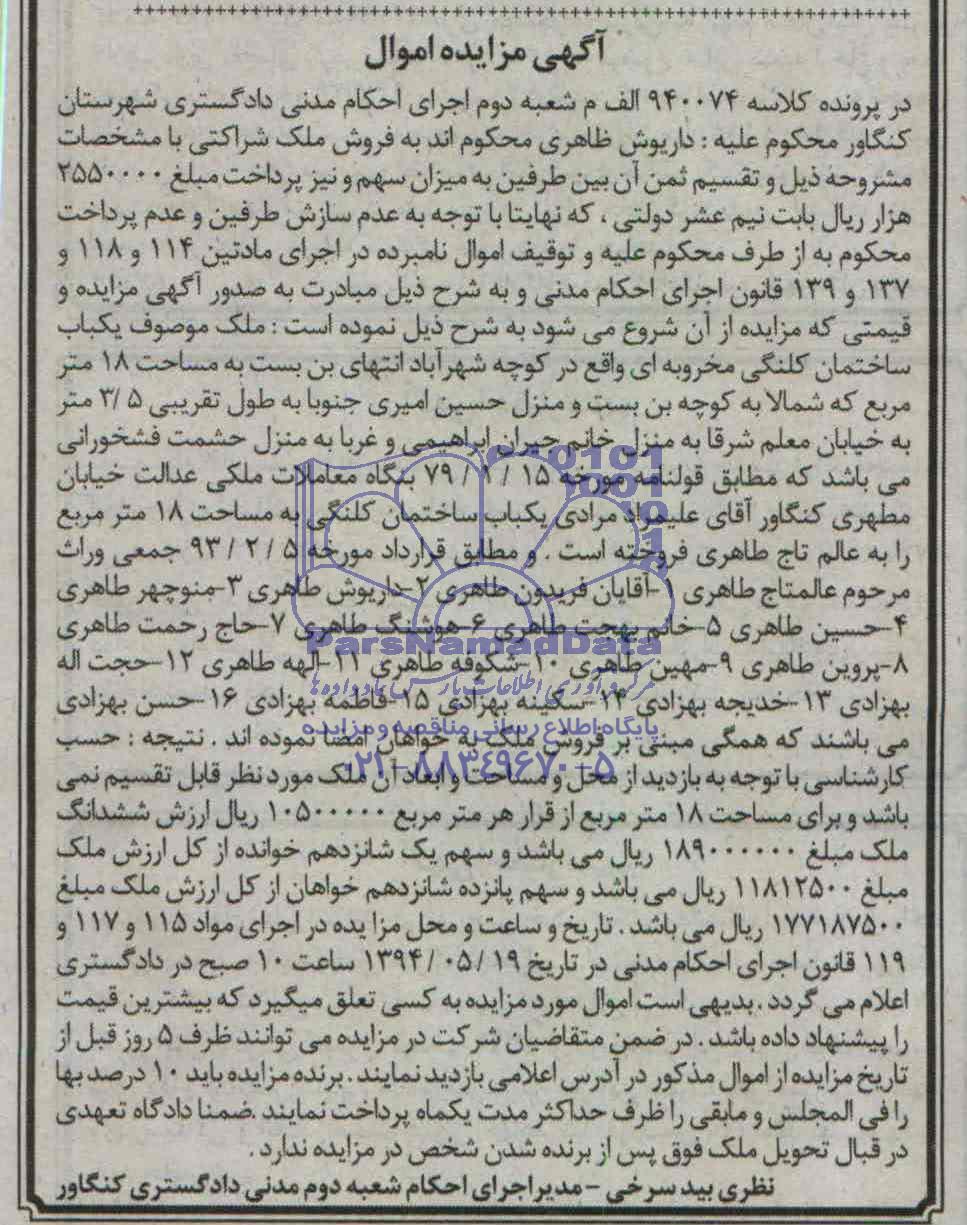 آگهی مزایده اموال
در پرونده کلاسه ۹۴۰۰۷۴ الف م شعبه دوم اجرای احکام مدنی دادگستری شهرستان
کنگاور محکوم علیه : داریوش ظاهری محکوم اند به فروش ملک شراکتی با مشخصات
مشروحه ذیل و تقسیم ثمن آن بین طرفین به میزان سهم و نیز پرداخت مبلغ ۲۵۵۰۰۰۰
هزار ریال بابت نیم عشر دولتی ، که نهایتا با توجه به عدم سازش طرفین و عدم پرداخت
محکوم به از طرف محکوم علیه و توقیف اموال نامبرده در اجرای مادتین ۱۱۴ و ۱۱۸ و
۱۳۷ و ۱۳۹ قانون اجرای احکام مدنی و به شرح ذیل مبادرت به صدور آگهی مزایده و
قیمتی که مزایده از آن شروع می شود به شرح ذیل نموده است : ملک موصوف یکباب
ساختمان کلنگی مخروبه ای واقع در کوچه شهرآباد انتهای بن بست به مساحت ۱۸ متر
مربع که شمالا به کوچه بن بست و منزل حسین امیری جنوبا به طول تقریبی ۳/۵ متر
به خیابان معلم شرقا به منزل خانم جیران ابراهیمی و غربا به منزل حشمت فشخورانی
می باشد که مطابق قولنامه مورخه ۱۵ / ۱ / ۷۹ بنگاه معاملات ملکی عدالت خیابان
مطهری کنگاور آقای علیمراد مرادی یکباب ساختمان کلنگی به مساحت ۱۸ متر مربع
را به عالم تاج طاهری فروخته است . و مطابق قرارداد مورخه ۵ / ۲ / ۹۳ جمعی وراث
مرحوم عالمتاج طاهری ۱-آقایان فریدون طاهری ۲-داریوش طاهری ۳-منوچهر طاهری
۴-حسین طاهری ۵-خانم بهجت طاهری ۶-هوشنگ طاهری ۷-حاج رحمت طاهری
۸-پروین طاهری ۹-مهین طاهری ۱۰-شکوفه طاهری ۱۱-الهه طاهری ۱۲-حجت اله
بهزادی ۱۳-خدیجه بهزادی ۱۴-سکینه بهزادی ۱۵-فاطمه بهزادی ۱۶-حسن بهزادی
می باشند که همگی مبنی بر فروش ملک به خواهان امضا نموده اند . نتیجه : حسب
کارشناسی با توجه به بازدید از محل و مساحت و ابعاد آن ملک مورد نظر قابل تقسیم نمی
باشد و برای مساحت ۱۸ متر مربع از قرار هر متر مربع ۱۰۵۰۰۰۰۰ ریال ارزش ششدانگ
ملک مبلغ ۱۸۹۰۰۰۰۰۰ ریال می باشد و سهم یک شانزدهم خوانده از کل ارزش ملک
مبلغ ۱۱۸۱۲۵۰۰ ریال می باشد و سهم پانزده شانزدهم خواهان از کل ارزش ملک مبلغ
۱۷۷۱۸۷۵۰۰ ریال می باشد . تاریخ و ساعت و محل مزا یده در اجرای مواد ۱۱۵ و ۱۱۷ و
۱۱۹ قانون اجرای احکام مدنی در تاریخ ۱۹ /۰۵ /۱۳۹۴ ساعت ۱۰ صبح در دادگستری
اعلام می گردد . بدیهی است اموال مورد مزایده به کسی تعلق میگیرد که بیشترین قیمت
را پیشنهاد داده باشد . در ضمن متقاضیان شرکت در مزایده می توانند ظرف ۵ روز قبل از
تاریخ مزایده از اموال مذکور در آدرس اعلامی بازدید نمایند . برنده مزایده باید ۱۰ درصد بها
را فی المجلس و مابقی را ظرف حداکثر مدت یکماه پرداخت نمایند .ضمنا دادگاه تعهدی
در قبال تحویل ملک فوق پس از برنده شدن شخص در مزایده ندارد .
نظری بید سرخی – مدیر اجرای احکام شعبه دوم مدنی دادگستری کنگاور
ParsNamadData
مرکز فرآوری اطلاعات پارس نماد داده ها
پایگاه اطلاع رسانی مناقصه و مزایده
۰۲۱-۸۸۳۴۹۶۷۰-۵